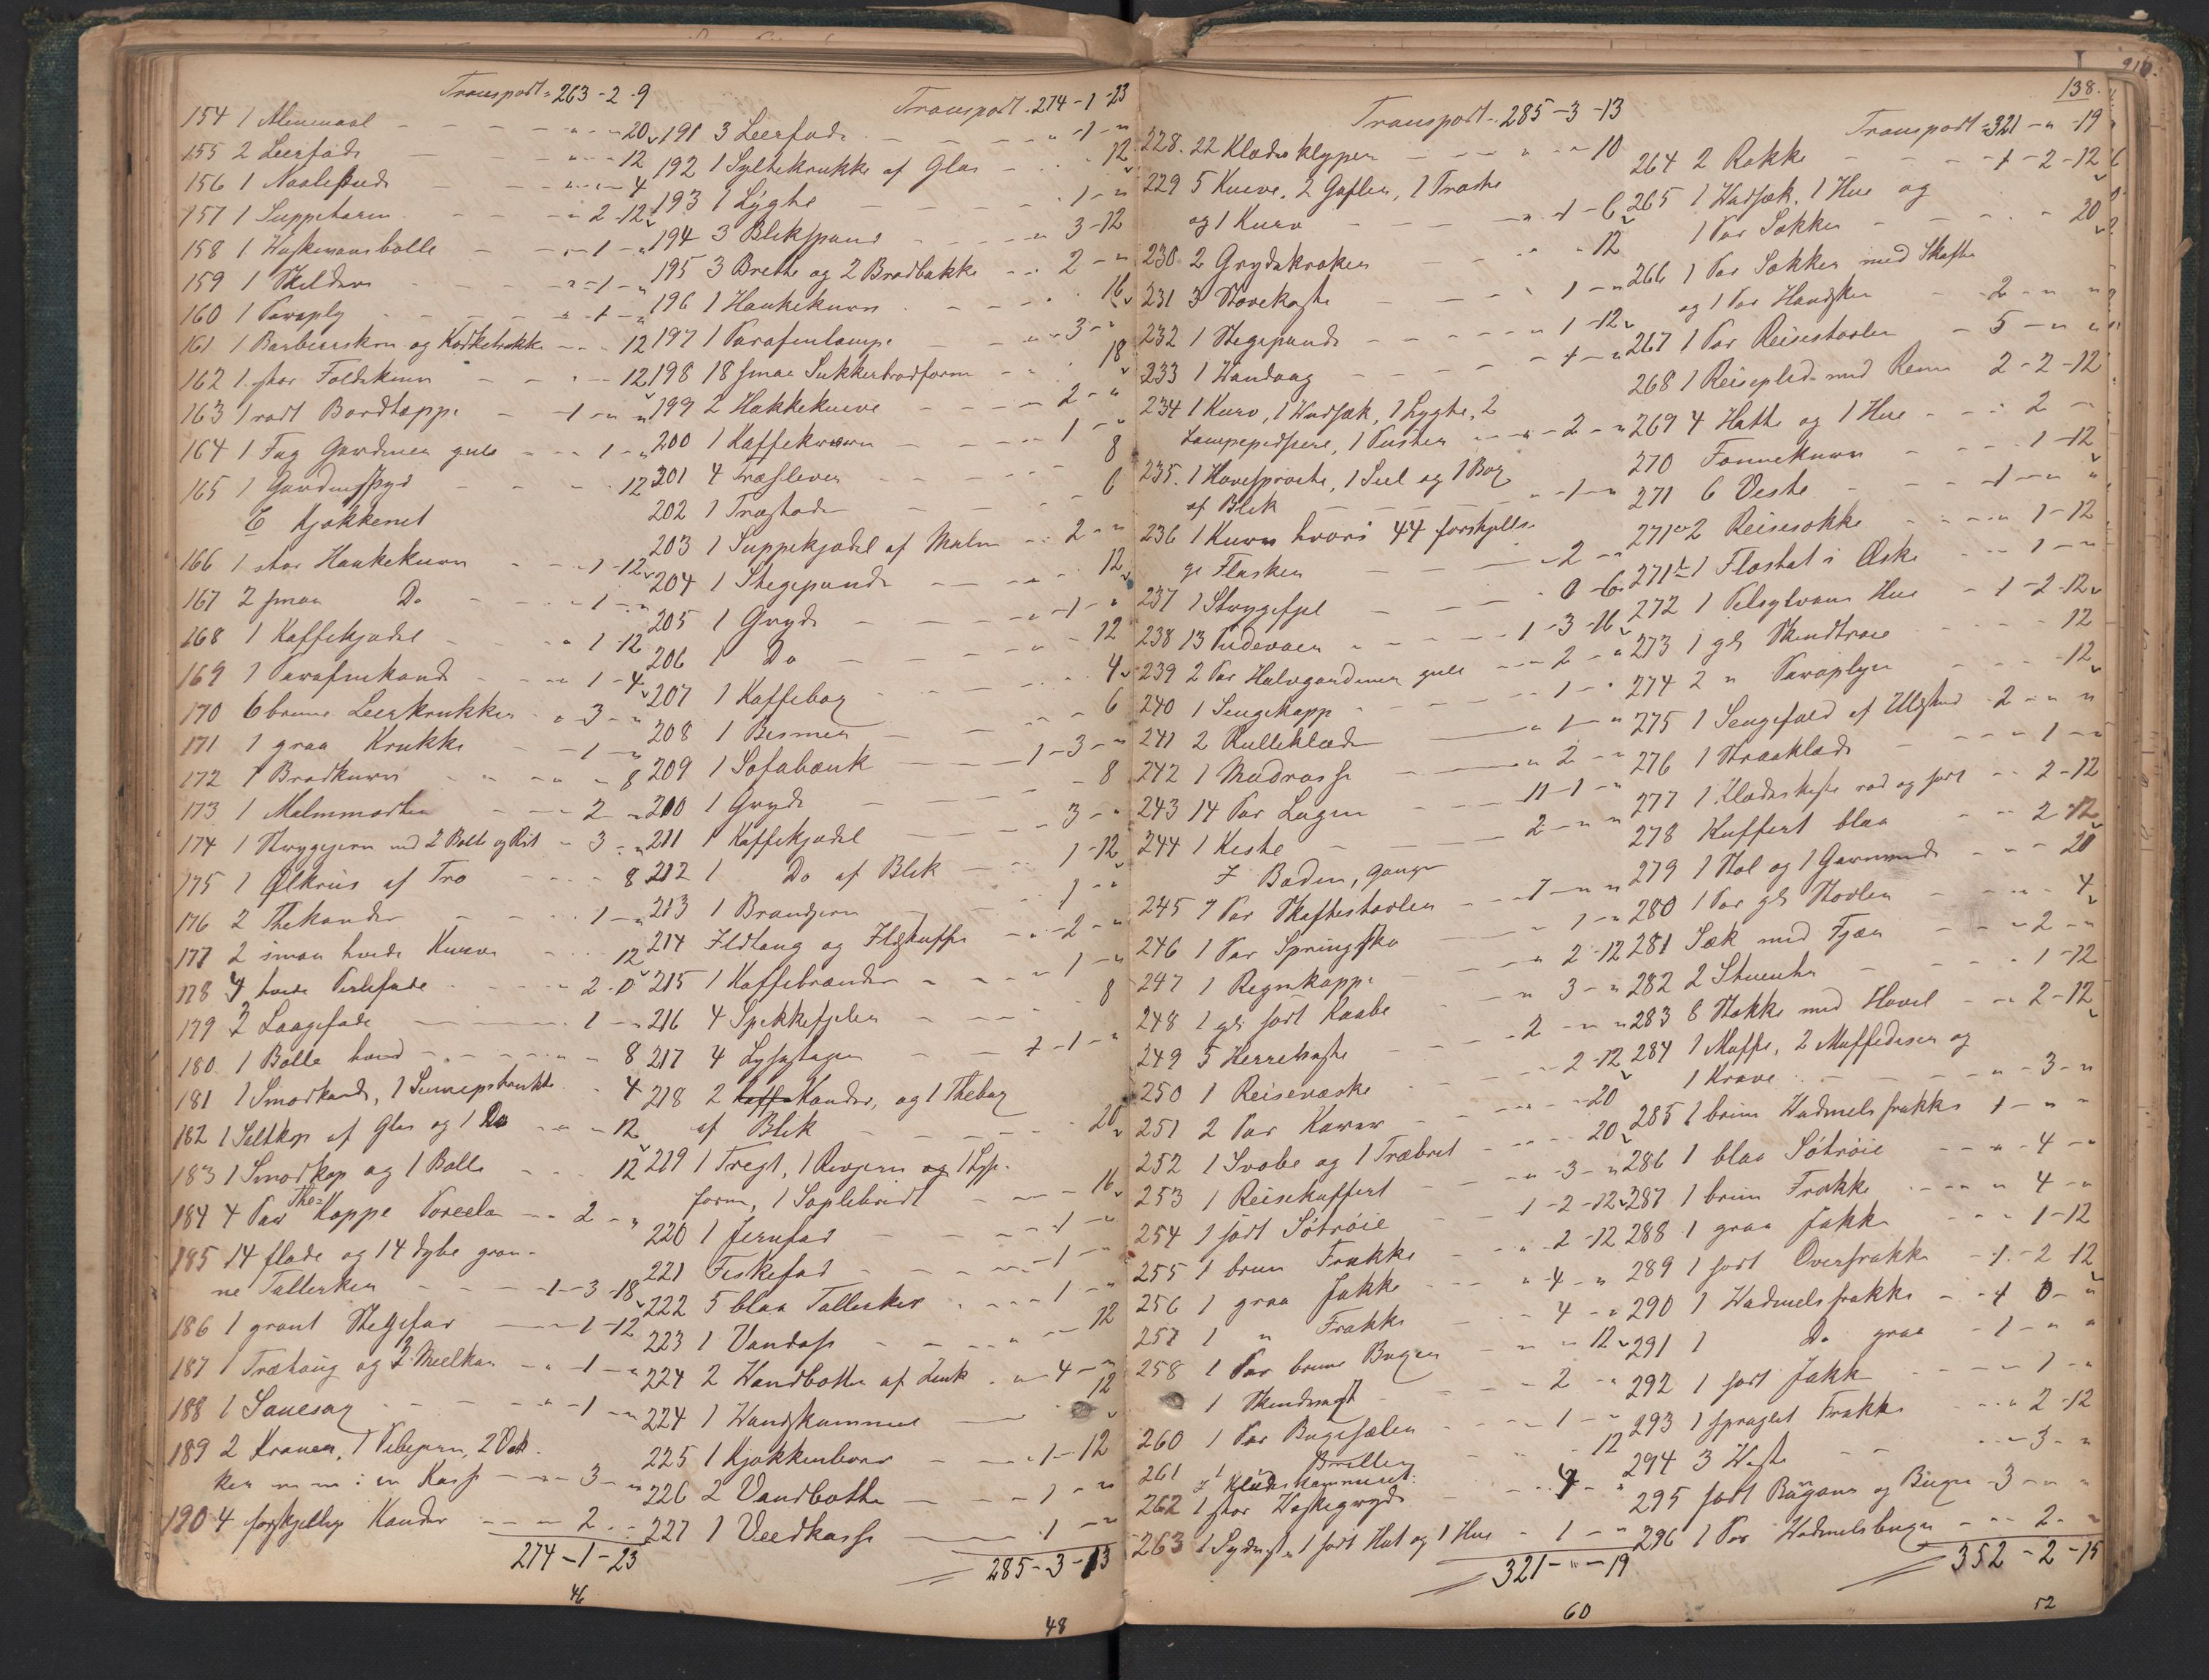 Transport 263-2-9
154 1 Alenmaal - 20
155 2 Leerfade - 12
156 1 Naalepude - 4
157 1 Suppeterin - 2-12
158 1 Waskevandsbolle - 1 - "
159 1 Skilderi - 1 - "
160 1 Paraply - 1 - "
161 1 Barbeerskrin og Korketrække - 12
162 1 stor Foldekniv - 12
163 1 rødt Bordtæppe - 1 - " - "
164 1 Fag Gardiner gule - 1 - "
165 1 Gardin 12
E Kjøkkenet
166 1 stor Hankekurv - 1-12
167 2 smaa Do - 1 - "
168 1 Kaffekjedel " 1-12
169 1 Parafinkande - 1-4
170 6 brune Leerkrukker " 3 - "
171 1 graa Krukke - 1 - "
172 1 Brødkurv - 8
173 1 Malmmorter - 2 - "
174 1 Strygejern med 2 Bolte og Rist - 3 - "
175 1 Ølkrus af Træ - 8
176 2 Thekander - 1 - "
177 2 smaa hvide Kurve - 12
178 4 hvide 2 - 0
179 2 Laagefade - 1 - "
180 1 Bolle hvid - 8
181 1 Smørkande, 1 Sennepskrukke - 4
182 1 Saltkop af Glas og 1 Do - 12
183 1 Smørkop og 1 Bolle - 12
184 4 Par The= Koppe Porcelæn - 2 - "
185 14 flade og 14 dybe grøn-
ne Tallerkener - 1-3-18
186 1 grønt Stegefad - 1-12
187 1 Trætoug og 2 Meelkar - 1 - "
188 1 Savesag - 1 - "
189 2 Kraner, 1 Pibejern, 2 Bak-
ker m m i en Kasse - 3 - "
190 4 forskjellige Kander - 2 - "
274-1-23
46
Transport 274-1-23
191 3 Leerfade - 1 - "
192 1 Syltekrukke af Glas - 12
193 1 Lygte - 1 - "
194 3 Blikspand - 3-12
195 3 Brette og 2 Brødbakke - 2 - "
196 1 Hankekurv - 16
197 1 Parafinlampe - 3 - "
198 18 smaa Sukkerbrødforme - 18
199 2 Hakkeknive - 2 - "
200 1 Kaffekværn - 1 - "
201 4 Træslever - 8
202 1 Træfad - 6
203 1 Suppekjedel af Malm - 2 - "
204 1 Stegepande - 12
205 1 Gryde - 1 - "
206 1 Do - 12
207 1 Kaffebog - 4
208 1 Bismer - 6
209 1 Sofabænk - 1-3 - "
210 1 Gryde - 8
211 1 Kaffekjedel - 3 - "
212 1 Do af Blik - 1-12
213 1 Brandjern - 1 - "
214 Ildtang og Ildskuffe - 2 - "
215 1 Kaffebrænder - 1 - "
216 4 Spekkefjeler - 8
217 4 Lysestager - 1-1 - "
218 2 Kander, og 1 Thebøs
af Blik - 20
219 1 Tregt, 1 Rivjern og 1 Lys-
form, 1 Sæplebrædt - 16
220 1 Jernfad - 1 - "
221 Fiskefad - 1 - "
222 5 blaa Tallerker - 1 - "
223 1 Vandøse - 12
224 2 Vandbøtter af Zink - 4 - "
224 1 Vandskammel - 12
225 1 Kjøkkenbord - 1-12
226 2 Vandbøtte - 1 - "
227 1 Veedkasse - 1 - "
285-3-13
48
138.
Transport 285-3-13
228. 22 Klædesklyper - 10
229 5 Knive, 2 Gafler, 1 Træske
og 1 Kurv - 1-6
230 2 Grydekroker - 12
231 3 - 1 - "
232 1 Stegepande - 1-12
233 1 - 1 - "
234 1 Kurv, 1 Vadsæk, 1 Lygte, 2
Lampepidsere, 1 Puster - 2 - "
235. 1 Havesprøite, 1 Seel og 1 Bøs
af Blik - 1 - "
236 1 Kurv hvori 44 forskjelli-
ge Flasker - 2 - "
237 1 Strygefjel - 0-6
238 13 Pudevaer - 1-3-16
239 2 Par Halvgardiner gule - 2 - "
240 1 Sengekappe - 1 - "
241 2 Rulleklæder - 1 - "
242 1 Madrasse - 2 - "
243 14 Par Lagen - 11-1 - "
244 1 Kiste - 2 - " - "
I Boden, gangen
245 7 Par Skaftestøvler - 7 - " - "
246 1 Par Springsko - 1 - "
247 1 Regnkappe - 2-12
248 1 gl: sort Kaabe - 3 - "
249 5 Herrehatte - 2 - " - "
250 1 Reisevæske - 2-12
251 2 Par Karver - 20
252 1 Svøbe og 1 Træbret - 20
253 1 Reisekuffert - 3 - "
254 1 sort Søtrøie - 1-2-12
255 1 brun Frakke - 2-12
256 1 graa Jakke " 4 - "
257 1 " Frakke - 4 - "
258 1 Par brune Buxer - 12
1 - 2 - "
260 1 Par Buxesæler - 1 - "
261 1 Briller - 12
I Klædekammeret:
262 1 stor Waskegryde - 4 - "
263 1 Sydvest, 1 sort Hat og 1 Hue - 1 - "
321 - " - 19
60
Transport 321 - " - 19
264 2 Rokke - 1-2-12
265 1 Vadsæk, 1 Hue og
1 Par Sokker - 20
266 1 Par Sokker med Skafter
og 1 Par Handsker - 2 - "
267 1 Par Reisestøvler - 5 - " - "
268 1 Reiseplæd med Remme 2-2-12
269 4 Hatte og 1 Hue - 2 - "
270 Tønnekurv - 1-12
271 6 Veste - 1 - " - "
271a 2 Reisesokke - 1-12
271b 1 Floshat i Æske - 1 - "
272 1 Hue - 1-2-12
273 1 gl: Skindtrøie - 12
274 2 " Paraplyer - 12
275 1 Sengefæld af Uldskind - 2 - " - "
276 1 - 1 - "
277 1 rød og sort - 2-12
278 Kuffert blaa - 2-12
279 1 Stol og 1 - 20
280 1 Par gl: Støvler - 4
281 Sæk med Fjær - 2 - "
282 2 - 1-12
283 8 Stokke med Hovel - 2-12
284 1 Muffe, 2 Muffediser og
1 Krave - 3 - "
285 1 brun Vadmelsfrakke 1 - " - "
286 1 blaa Søtrøie - 4 - "
287 1 brun Frakke - 4 - "
288 1 graa Jakke - 1-12
289 1 sort Overfrakke - 1-2-12
290 1 Vadmelsfrakke - 4 0 - "
291 1 Do graa - 1 - " - "
292 1 sort Jakke - 1 - "
293 1 spraglet Frakke - 2-12
294 3 Veste - 3 - "
295 sort og Buxer - 3 - " - "
296 1 Par Vadmelsbuxer - 2 - "
352-2-15
52